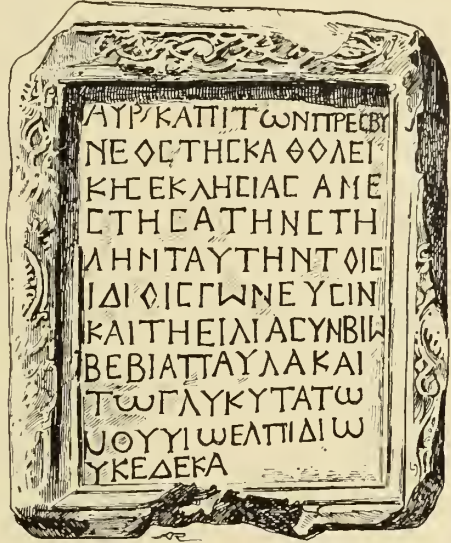 ΑΥΡ ΚΑΠΙΤΩΝ ΠΡΕСΒΥ
ΝΕΟС ΤΗС ΚΑΘΟΛΕΙ
ΚΗС ΕΚΛΗСΙΑС ΑΝΕ
СΤΗСΑ ΤΗΝ СΤΗ
ΛΗΝ ΤΑΥΤΗΝ ΤΟΙС
ΙΔΙΟΙС ΓΩΝΕΥСΙΝ
ΚΑΙ ΤΗ ΕΙΛΙΑ СΥΝΒΙΩ
ΒΕΒΙΑ ΠΑΥΛΑ ΚΑΙ
ΤΩ ΓΛΥΚΥΤΑΤΩ
ΜΟΥ ΥΙΩ ΕΛΠΙΔΙΩ
ΥΚΕΔΕΚΑ